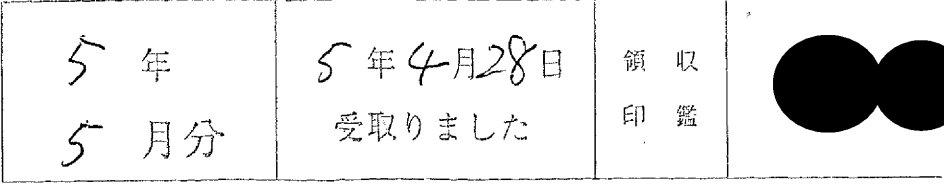 5年
5月分
5年4月28日
受取りました
領収
印鑑